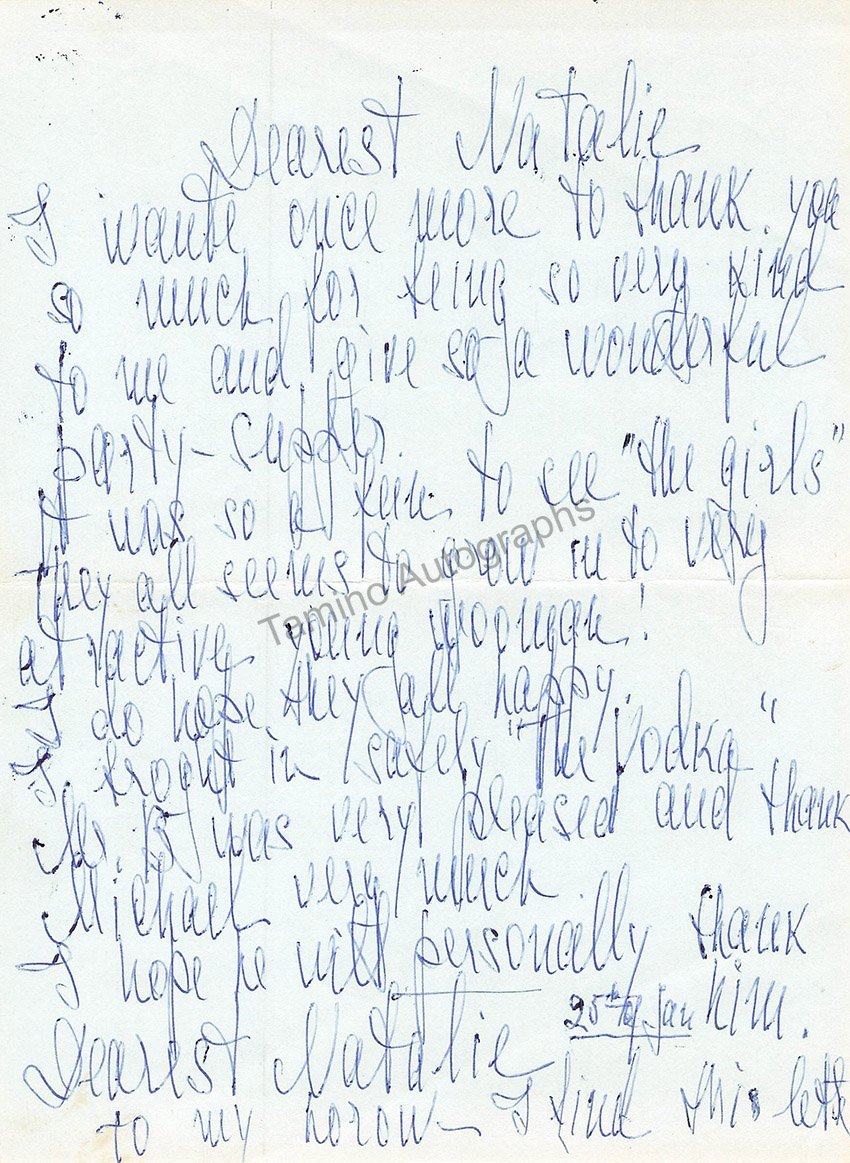 Dearest Natalie
I wante once more to thank you
so much for being so very kind
to me and give so a wonderful
party-supper.
It was so a fun to see "the girls"
they all seems to grow in to very
atractive young wooman!
I do hope they all happy.
I broght in safely "The Vodka"
Mr. B was very pleased and thank
Michael very much
I hope he will personally thank
him.
25th of Jan
Dearest Natalie
to my horow I find this lette
Tamino Autographs